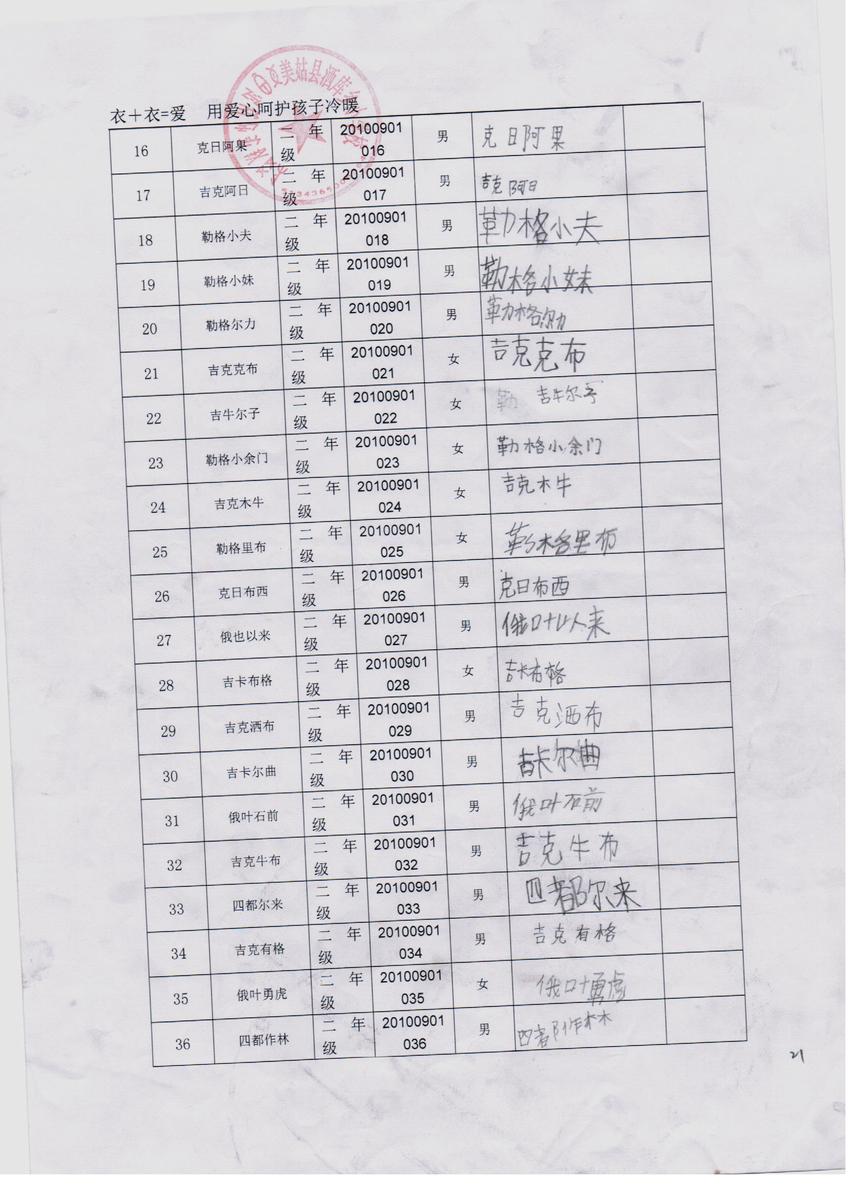 衣+衣=爱 用爱心呵护孩子冷暖
16 克日阿果 二年级 20100901016 男 克日阿果
17 吉克阿日 二年级 20100901017 男 吉克阿日
18 勒格小夫 二年级 20100901018 男 勒格小夫
19 勒格小妹 二年级 20100901019 男 勒格小妹
20 勒格尔力 二年级 20100901020 男 勒格尔力
21 吉克克布 二年级 20100901021 女 吉克克布
22 吉牛尔子 二年级 20100901022 女 勒 吉牛尔子
23 勒格小余门 二年级 20100901023 女 勒格小余门
24 吉克木牛 二年级 20100901024 女 吉克木牛
25 勒格里布 二年级 20100901025 女 勒格里布
26 克日布西 二年级 20100901026 男 克日布西
27 俄也以来 二年级 20100901027 男 俄叶以来
28 吉卡布格 二年级 20100901028 女 吉卡布格
29 吉克洒布 二年级 20100901029 男 吉克洒布
30 吉卡尔曲 二年级 20100901030 男 吉卡尔曲
31 俄叶石前 二年级 20100901031 男 俄叶石前
32 吉克牛布 二年级 20100901032 男 吉克牛布
33 四都尔来 二年级 20100901033 男 四都尔来
34 吉克有格 二年级 20100901034 男 吉克有格
35 俄叶勇虎 二年级 20100901035 女 俄叶勇虎
36 四都作林 二年级 20100901036 男 四都作林
21